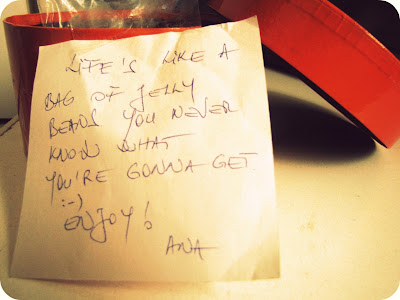 LIFE'S LIKE A
BAG OF JELLY
BEANS YOU NEVER
KNOW WHAT
YOU'RE GONNA GET
:-)
ENJOY!
ANA